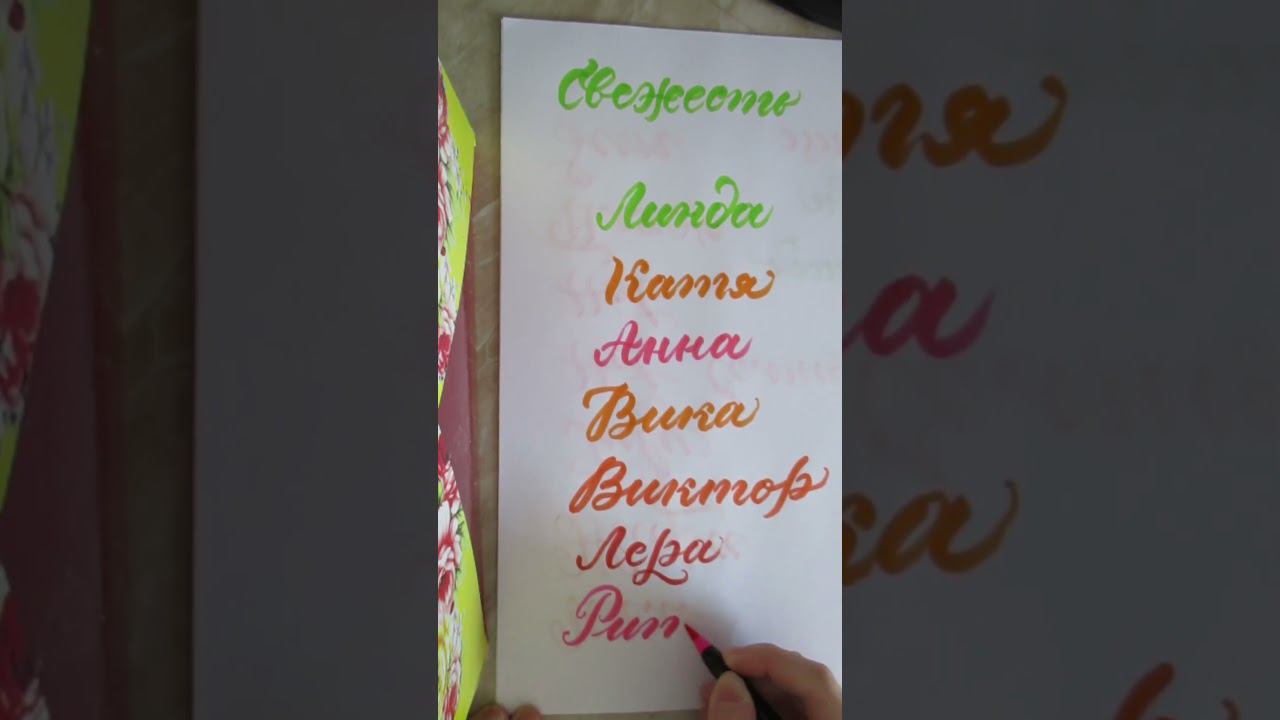 Свежесть
Линда
Катя
Анна
Вика
Виктор
Лера
Рит